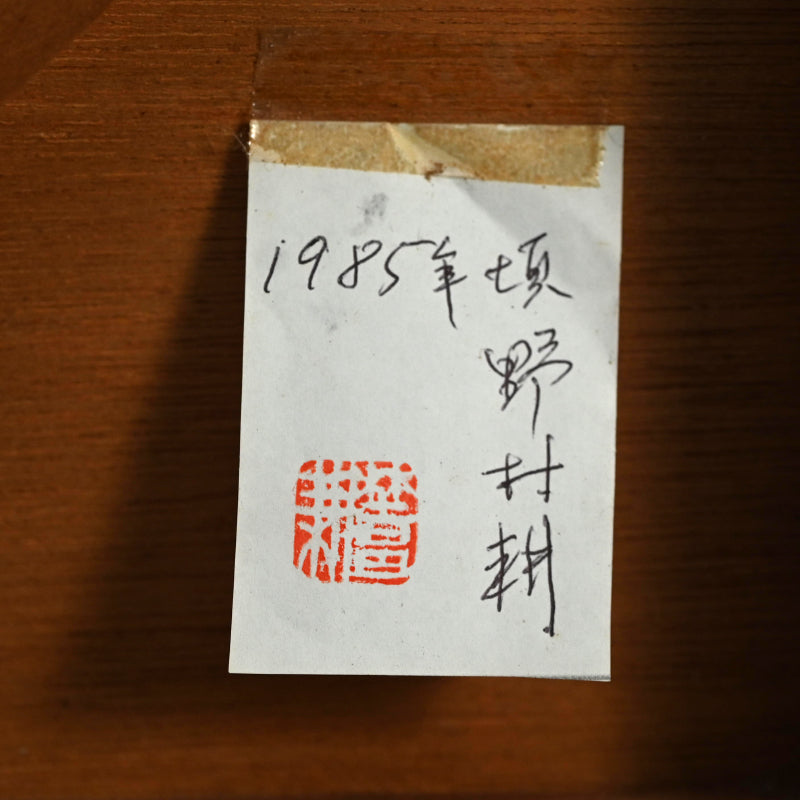 1985年頃
野村耕